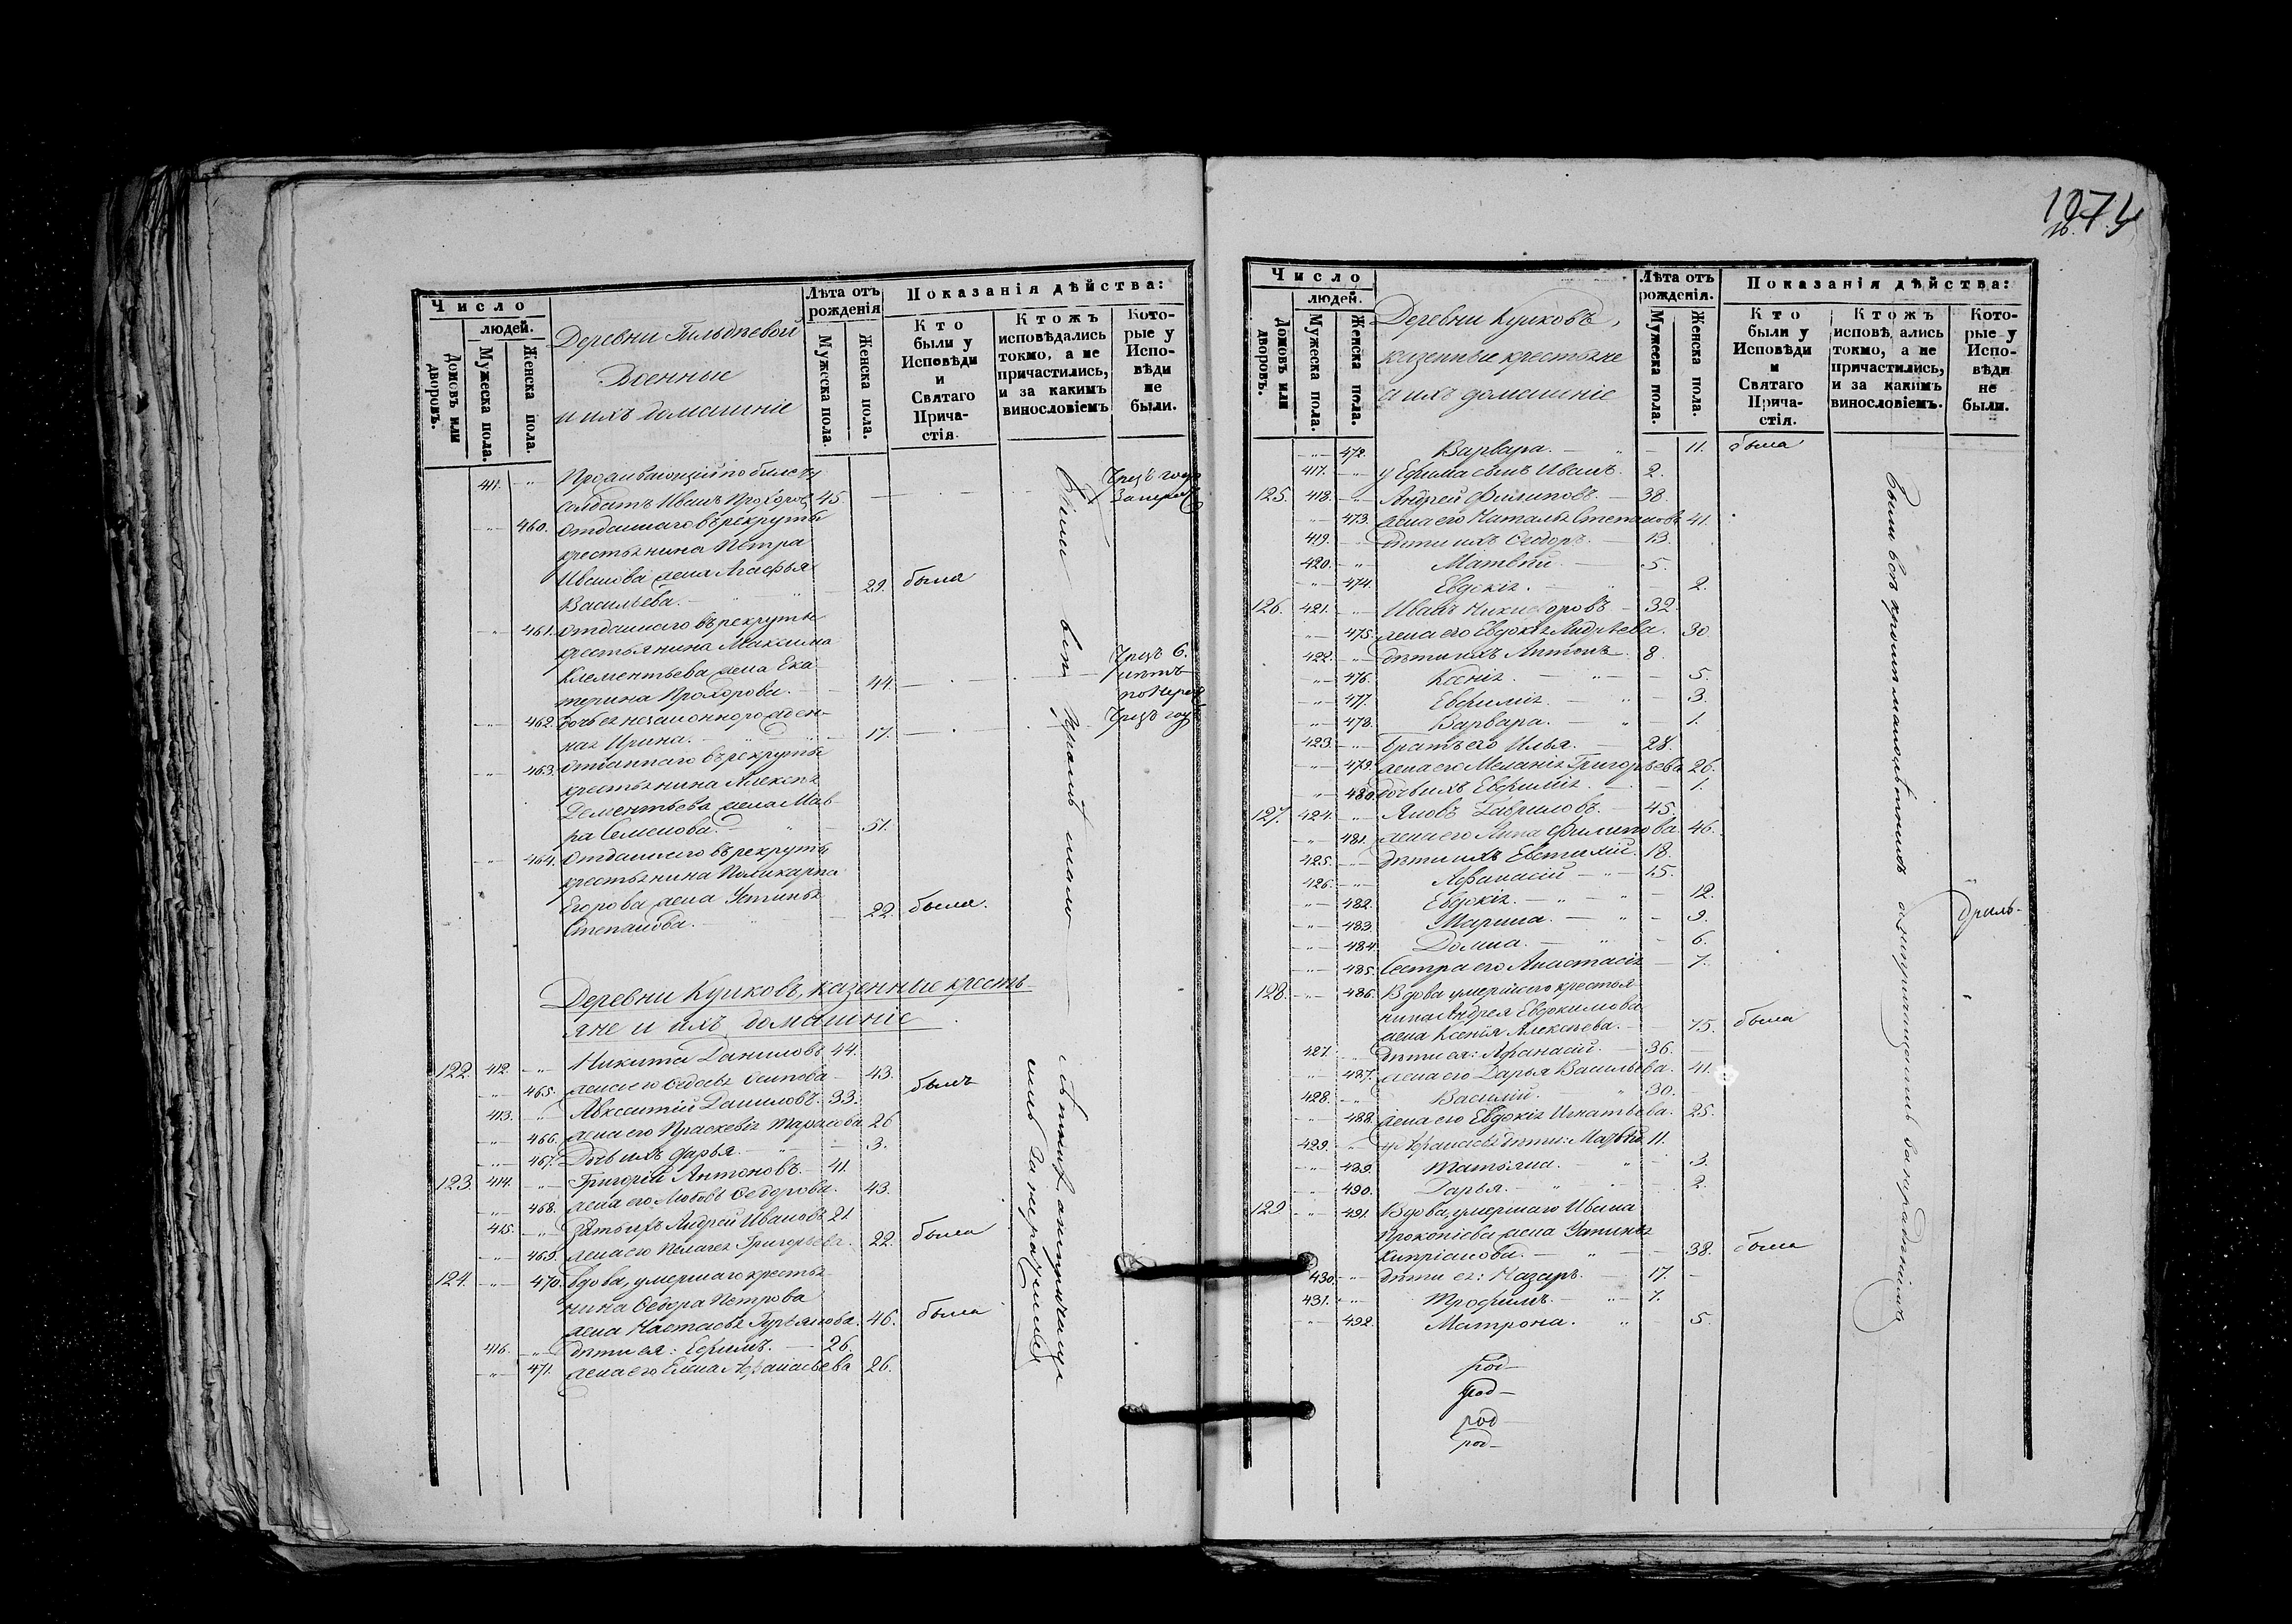 Число
людей.
Домовъ или дворовъ.
Мужеска пола.
Женска пола.
Деревни
Военные
и ихъ домашніе
Лѣта отъ рожденія
Мужеска пола.
Женска пола.
Показанія дѣйства:
Кто были у Исповѣди и Святаго Прича-стія.
Ктожъ исповѣдались токмо, а не причастились, и за какимъ винословіемъ
Кото-рые у Испо-вѣди не были.
411. —„— Проживающій по билету
солдатъ Иванъ Прохоров 45
—„— 460. Отданнаго въ рекруты
крестьянина Петра
Иванова жена Агафья
Васильева. — 29. была
—„— 461. Отданнаго въ рекруты
крестьянина Максима
Клементьева жена Ека-
терина Прохорова. — 44
—„— 462. Дочь ея незаконнорожден-
ная Ирина. — 17.
—„— 463. Отданнаго въ рекруты
крестьянина Алексѣя
Дементьева жена Мав-
ра Семенова. — 51.
—„— 464. Отданнаго въ рекруты
крестьянина Поликарпа
Егорова жена Устинья
Степанова. — 22. была.
Чрезъ 6.
Деревни Кулковъ, казенные кресть-
яне и ихъ домашніе
122. 412. —„— Никита Даниловъ 44.
—„— 465. жена его Федосья Осипова — 43.
413. —„— Авксентій Даниловъ. 33. былъ
—„— 466. жена его Праскевія Тарасова 26
—„— 467. Дочь ихъ Дарья. — 3.
123. 414. —„— Григорій Антоновъ. — 41.
—„— 468. жена его Любовь Федорова. 43.
415. —„— Зять ихъ Андрей Ивановъ 21
—„— 469. жена его Пелагея Григорьева. 22. была
124. —„— 470. Вдова, умершаго кресть-
янина Федора Петрова
жена Настасья Гурьянова. 46. была
416. —„— дѣти ея: Ефимъ. — 26.
—„— 471. жена его Елена Афанасьева 26.
были вси кромѣ мало-
лѣтнихъ
Число
людей.
Домовъ или дворовъ.
Мужеска пола.
Женска пола.
Деревни Кулковъ,
казенные крестьяне
и ихъ домашніе
Лѣта отъ рожденія.
Мужеска пола.
Женска пола.
Показанія дѣйства:
Кто были у Исповѣди и Святаго Прича-стія.
Ктожъ исповѣдались токмо, а не причастились, и за какимъ винословіемъ.
Кото-рые у Испо-вѣди не были.
—„— 472. Варвара. — 11. была
417. —„— у Ефима сынъ Иванъ. 2.
125. 418. —„— Андрей Филиповъ. — 38.
—„— 473. жена его Наталья Степанова 41.
419. —„— дѣти ихъ Ѳедоръ. — 13.
420. —„— Матвѣй. — 5.
—„— 474. Евдокія. — 2.
126. 421. —„— Иванъ Никифоровъ — 32.
—„— 475. жена его Евдокія Андреева. 30.
422. —„— дѣти ихъ Антонъ. 8.
—„— 476. Ксенія. — 5.
—„— 477. Евфимія. — 3.
—„— 478. Варвара. — 1.
423. —„— братъ его Илья. 28.
—„— 479. жена его Меланія Григорьева 26.
—„— 480. дочь ихъ Евфимія. — 1.
127. 424. —„— Яковъ Гавриловъ. — 45.
—„— 481. жена его Анна Филипова. 46.
425. —„— дѣти ихъ Евстихій. 18.
426. —„— Афанасій — 15.
—„— 482. Евдокія. — 12.
—„— 483. Марина. — 9.
—„— 484. Домна. — 6.
—„— 485. Сестра его Анастасія — 7.
128. —„— 486. Вдова умершаго крестья-
нина Андрея Евдокимова
жена Ксенія Алексѣева. — 75. была
427. —„— дѣти ея: Афанасій. — 36.
—„— 487. жена его Дарья Васильева. 41.
428. —„— Василій. — 30.
—„— 488. жена его Евдокія Игнатьева. 25.
429. —„— у Афанасья дѣти: Матвѣй 11.
—„— 489. Татьяна. — 3.
—„— 490. Дарья. — 2.
129 —„— 491. Вдова, умершаго Ивана
Прокопіева жена Устинья
Кипріанова. — 38. была
430. —„— дѣти ея: Назаръ. — 17.
431. —„— Трофимъ. — 7.
—„— 492. Матрона. — 5.
были вси кромѣ малолѣтнихъ